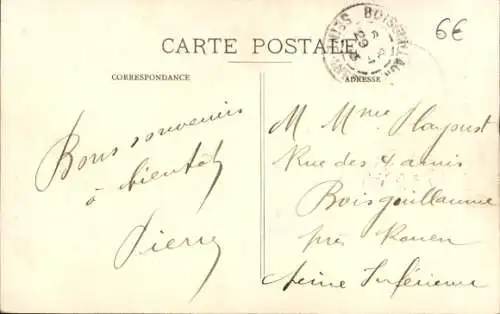 6€
CARTE POSTALE
CORRESPONDANCE
ADRESSE
BOISGUILLAU
29
Bons souvenirs
à bientôt
Pierre
M. Mme
Rue des 4 amis
Boisguillaume
près Rouen
Seine Inférieure